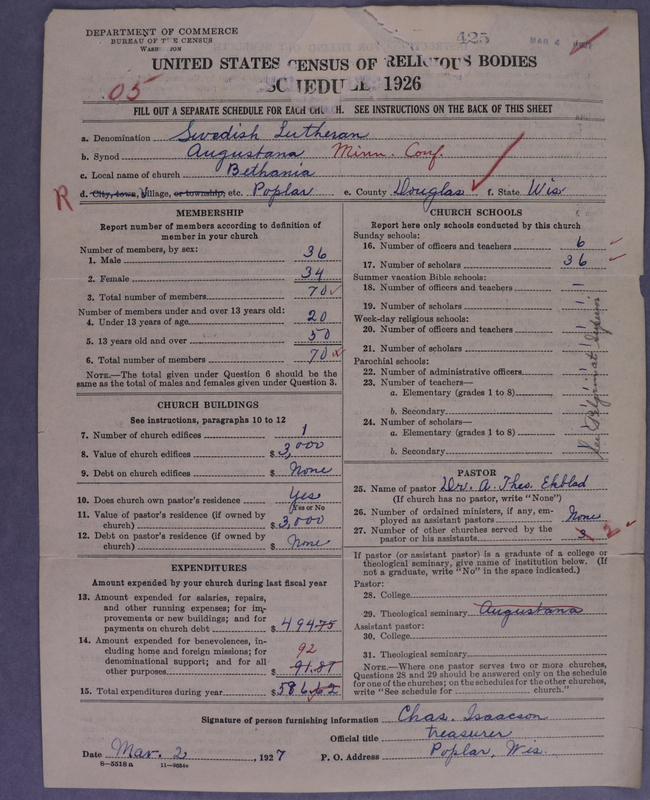 DEPARTMENT OF COMMERCE
BUREAU OF THE CENSUS
WASHINGTON
425
MAR 4 1927
UNITED STATES CENSUS OF RELIGIOUS BODIES
SCHEDULE, 1926
05
FILL OUT A SEPARATE SCHEDULE FOR EACH CHURCH. SEE INSTRUCTIONS ON THE BACK OF THIS SHEET
a. Denomination Swedish Lutheran
b. Synod Augustana Minn. Conf.
c. Local name of church Bethania
R d. City, town, Village, or township, etc. Poplar e. County Douglas f. State Wis
MEMBERSHIP
Report number of members according to definition of
member in your church
Number of members, by sex:
1. Male 36
2. Female 34
3. Total number of members 70
Number of members under and over 13 years old:
4. Under 13 years of age 20
5. 13 years old and over 50
6. Total number of members 70
NOTE.—The total given under Question 6 should be the
same as the total of males and females given under Question 3.
CHURCH BUILDINGS
See instructions, paragraphs 10 to 12
7. Number of church edifices 1
8. Value of church edifices $3,000
9. Debt on church edifices $ None
10. Does church own pastor's residence Yes
(Yes or No)
11. Value of pastor's residence (if owned by
church) $3,000
12. Debt on pastor's residence (if owned by
church) $ None
EXPENDITURES
Amount expended by your church during last fiscal year
13. Amount expended for salaries, repairs,
and other running expenses; for im-
provements or new buildings; and for
payments on church debt $494.75
14. Amount expended for benevolences, in-
cluding home and foreign missions; for
denominational support; and for all
other purposes $ 91.87 92
15. Total expenditures during year $586.62
CHURCH SCHOOLS
Report here only schools conducted by this church
Sunday schools:
16. Number of officers and teachers 6
17. Number of scholars 36
Summer vacation Bible schools:
18. Number of officers and teachers
19. Number of scholars
Week-day religious schools:
20. Number of officers and teachers
21. Number of scholars
Parochial schools:
22. Number of administrative officers
23. Number of teachers—
a. Elementary (grades 1 to 8)
b. Secondary
24. Number of scholars—
a. Elementary (grades 1 to 8)
b. Secondary
PASTOR
25. Name of pastor Dr. A. Theo. Ekblad
(If church has no pastor, write "None")
26. Number of ordained ministers, if any, em-
ployed as assistant pastors None
27. Number of other churches served by the
pastor or his assistants 3 2
If pastor (or assistant pastor) is a graduate of a college or
theological seminary, give name of institution below. (If
not a graduate, write "No" in the space indicated.)
Pastor:
28. College
29. Theological seminary Augustana
Assistant pastor:
30. College
31. Theological seminary
NOTE.—Where one pastor serves two or more churches,
Questions 28 and 29 should be answered only on the schedule
for one of the churches; on the schedules for the other churches,
write "See schedule for church."
Signature of person furnishing information Chas. Isaacson
Official title treasurer
Date Mar. 2, 1927 P. O. Address Poplar, Wis.
8—5518 a